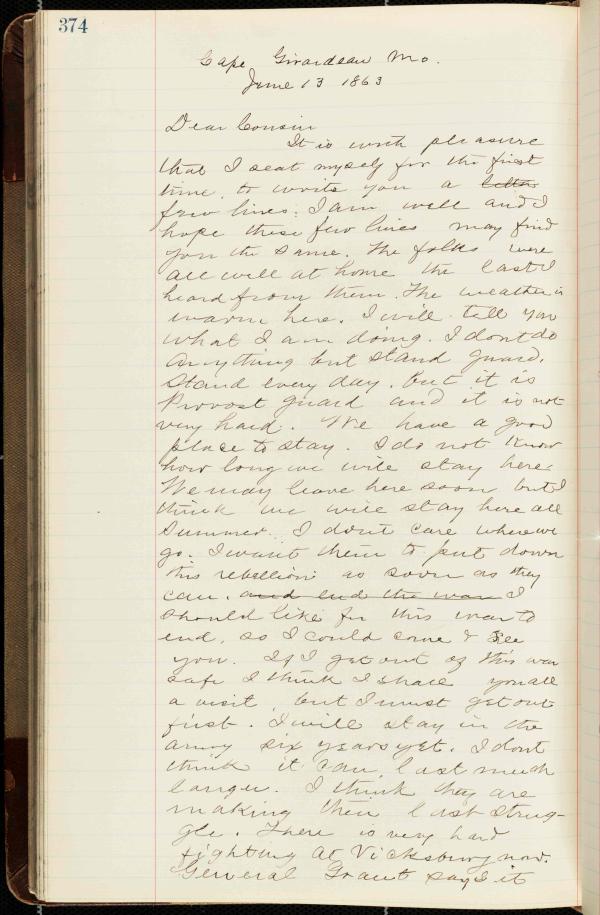 374
Cape Girardeau Mo.
June 13 1863
Dear Cousin
It is with pleasure
that I seat myself for the first
time, to write you a letter
few lines. I am well and I
hope these few lines may find
you the same. The folks were
all well at home the last I
heard from them. The weather is
warm here. I will tell you
what I am doing. I dont do
anything but stand guard.
Stand every day. but it is
Provost guard and it is not
very hard. We have a good
place to stay. I do not know
how long we will stay here.
We may leave here soon but I
think we will stay here all
Summer. I don't care where we
go. I want them to put down
this rebellion as soon as they
can. and end the war I
should like for this war to
end, so I could come & See
you. If I get out of this war
safe I think I shall you all
a visit, but I must get out
first. I will stay in the
army six years yet. I dont
think it can last much
longer. I think they are
making their last strug-
gle. There is very hard
fighting at Vicksburg now.
General Grant says it